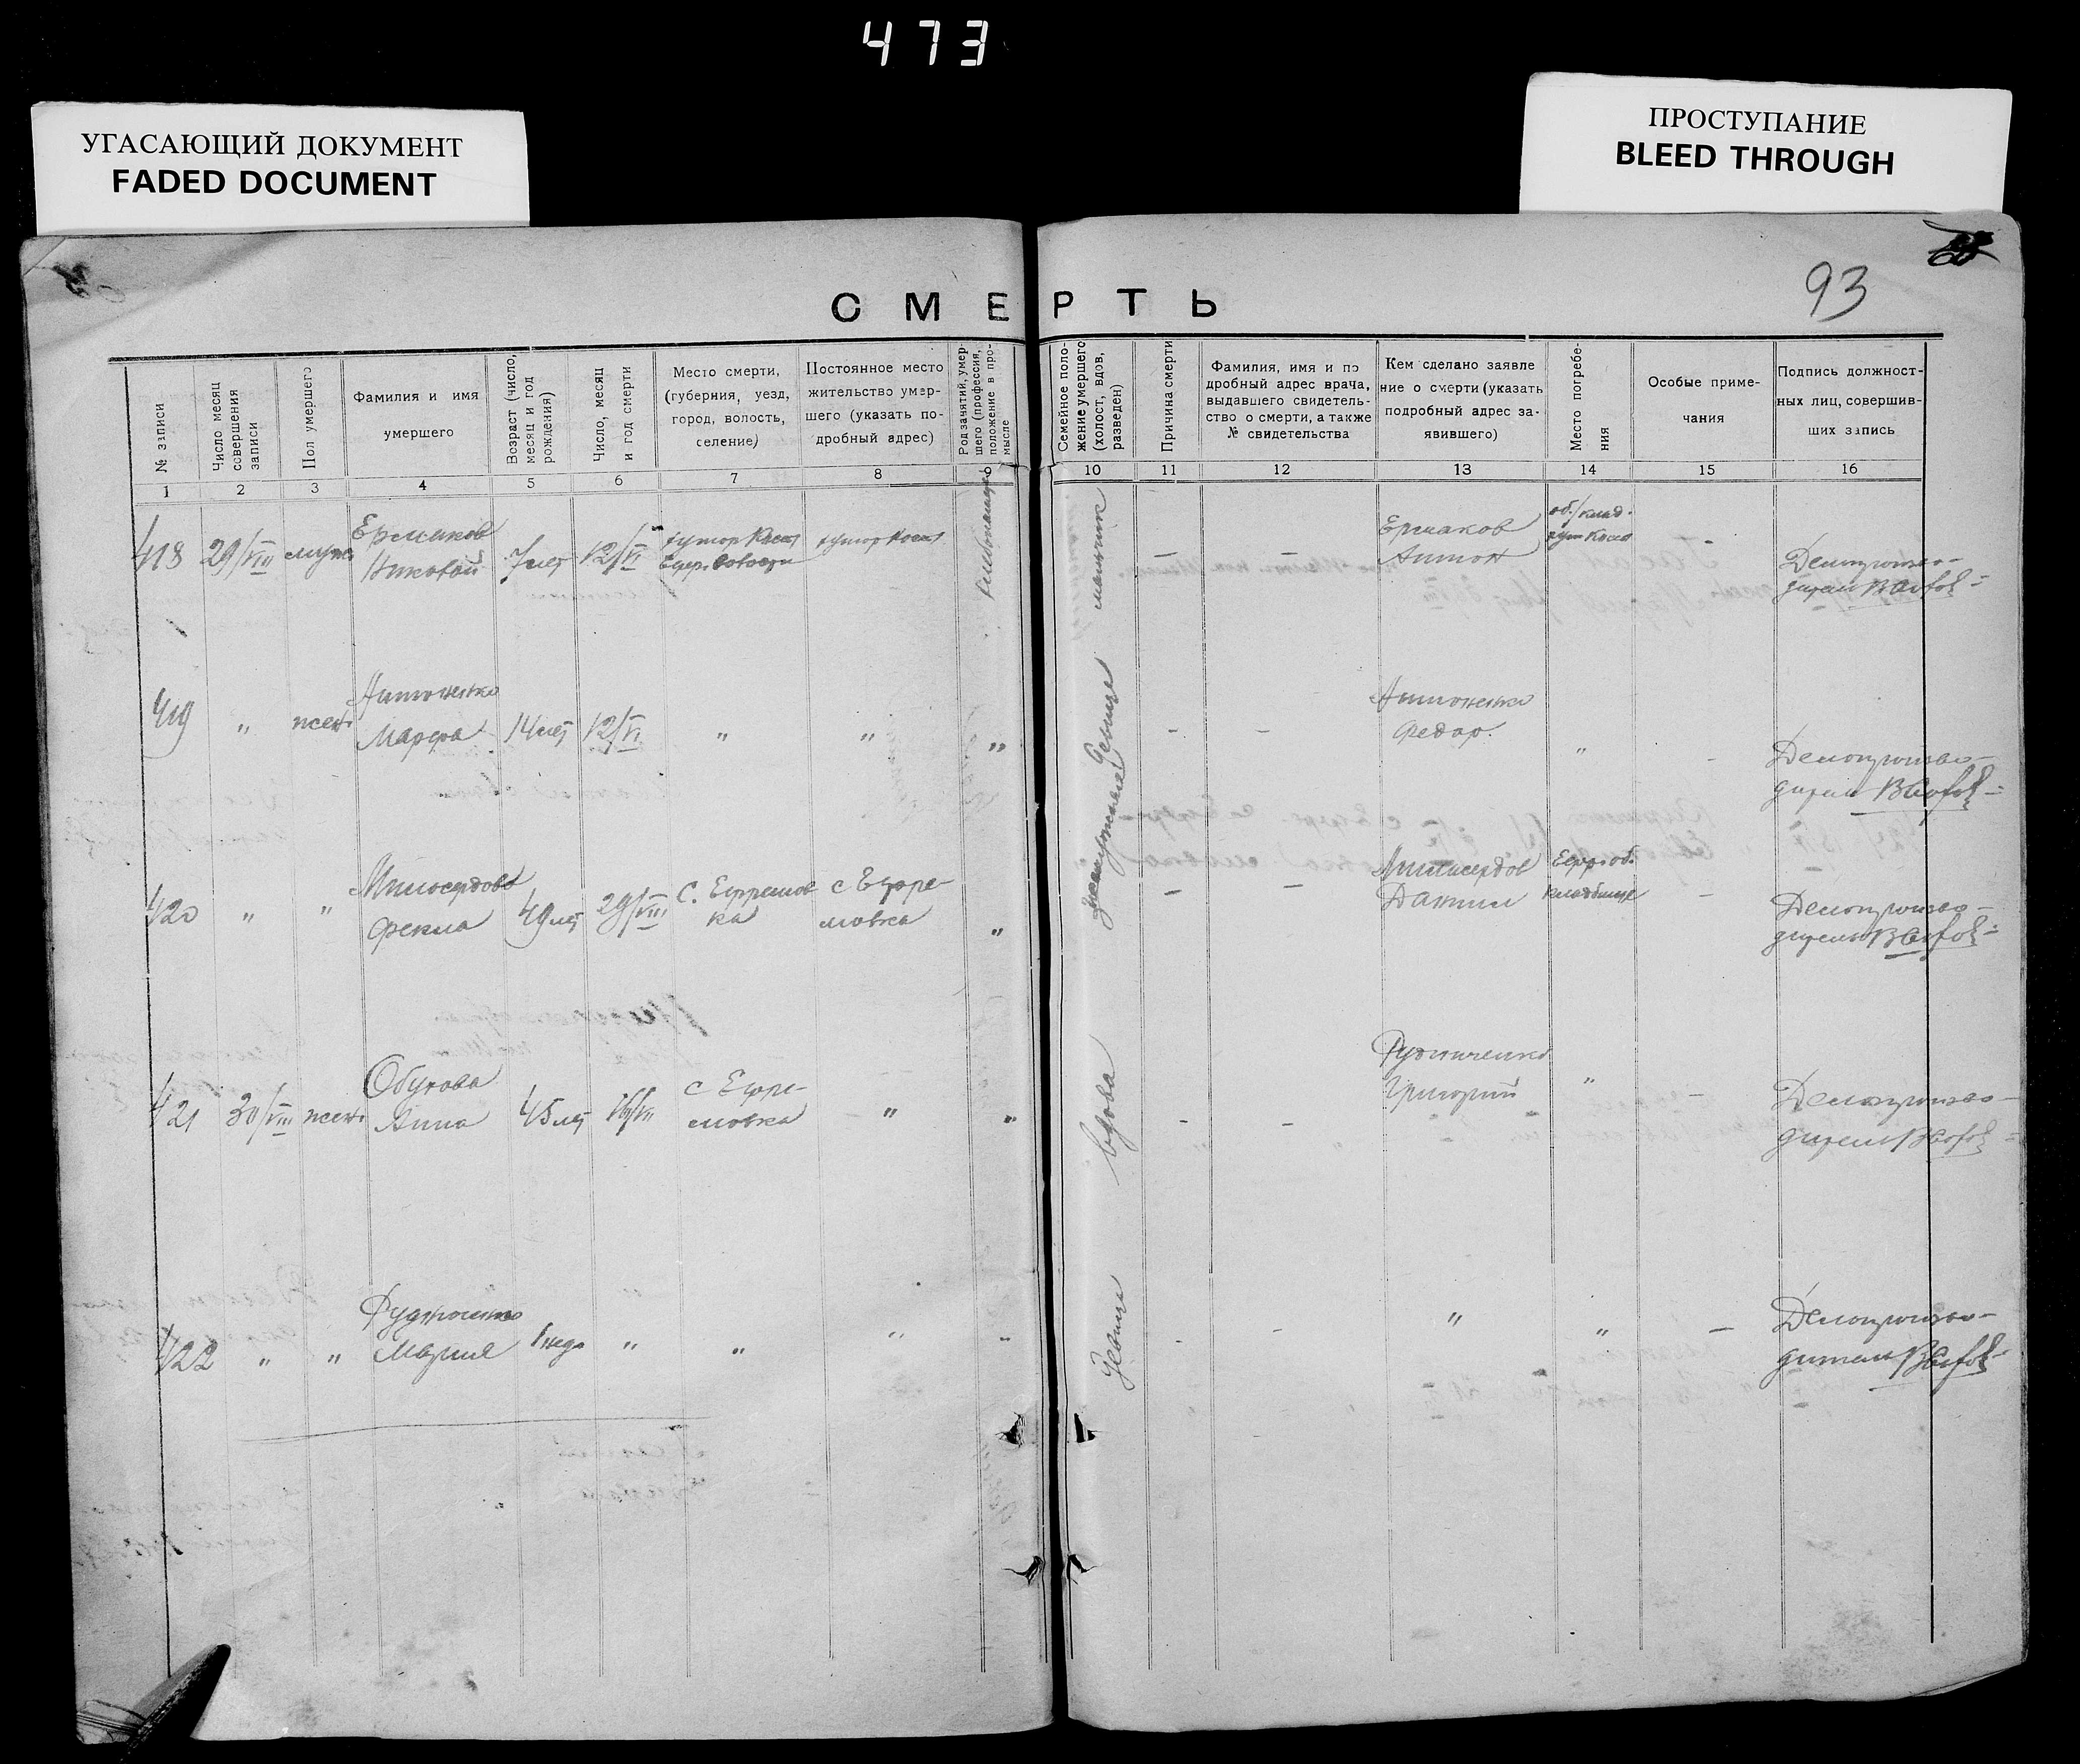 473
УГАСАЮЩИЙ ДОКУМЕНТ
FADED DOCUMENT
ПРОСТУПАНИЕ
BLEED THROUGH
93
СМЕРТЬ
№ записи
Число месяц
совершения
записи
Пол умершего
Фамилия и имя
умершего
Возраст (число,
месяц и год
рождения)
Число, месяц
и год смерти
Место смерти,
(губерния, уезд,
город, волость,
селение)
Постоянное место
жительство умер-
шего (указать по-
дробный адрес)
Род занятий, умер-
шего (профессия,
положение в про-
мысле
Семейное поло-
жение умершего
(холост, вдов,
разведен)
Причина смерти
Фамилия, имя и по
дробный адрес врача,
выдавшего свидетель-
ство о смерти, а также
№ свидетельства
Кем сделано заявле
ние о смерти (указать
подробный адрес за-
явившего)
Место погребе-
ния
Особые приме-
чания
Подпись должност-
ных лиц, совершив-
ших запись
1 2 3 4 5 6 7 8 10 11 12 13 14 15 16
418 29/VIII муж Ермаков
Николай 7 лет 12/VI хутор
хутор
мальчик
—
—
Ермаков
Антон
об./клад.
-
Делопроизво-
дитель
419 " жен. Антоненко
Марфа 14 лет 12/VI " " "
Девица
-
-
Антоненко
Федор.
"
-
Делопроизво-
дитель
420 " " Милосердова
Фекла 49 лет 29/VIII с. Ефремов
ка
с Ефре-
мовка
"
замужняя
-
-
Милосердов
Данил
Ефр. об.
кладбище
-
Делопроизво-
дитель
421 30/VIII жен. Обухова
Анна 45 лет
с Ефре-
мовка
"
"
вдова
-
-
Григорий
"
-
Делопроизво-
дитель
422 " "
Мария " " " -
Девица
-
-
"
"
-
Делопроизво-
дитель